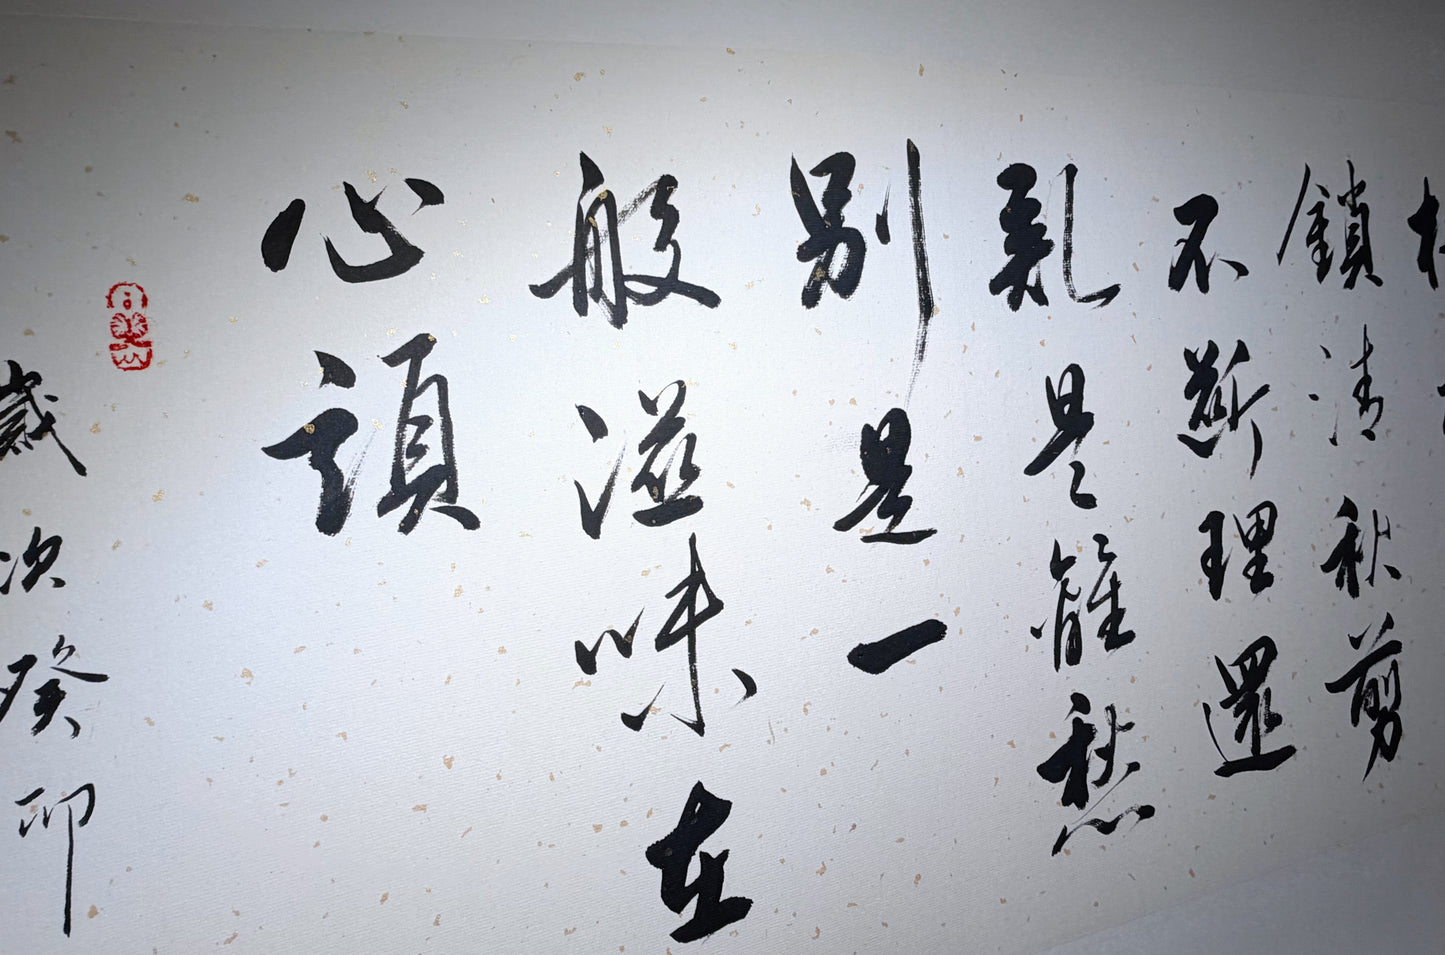 鎖清秋剪
不斷理還
亂是離愁
別是一
般滋味在
心頭
歲次癸卯